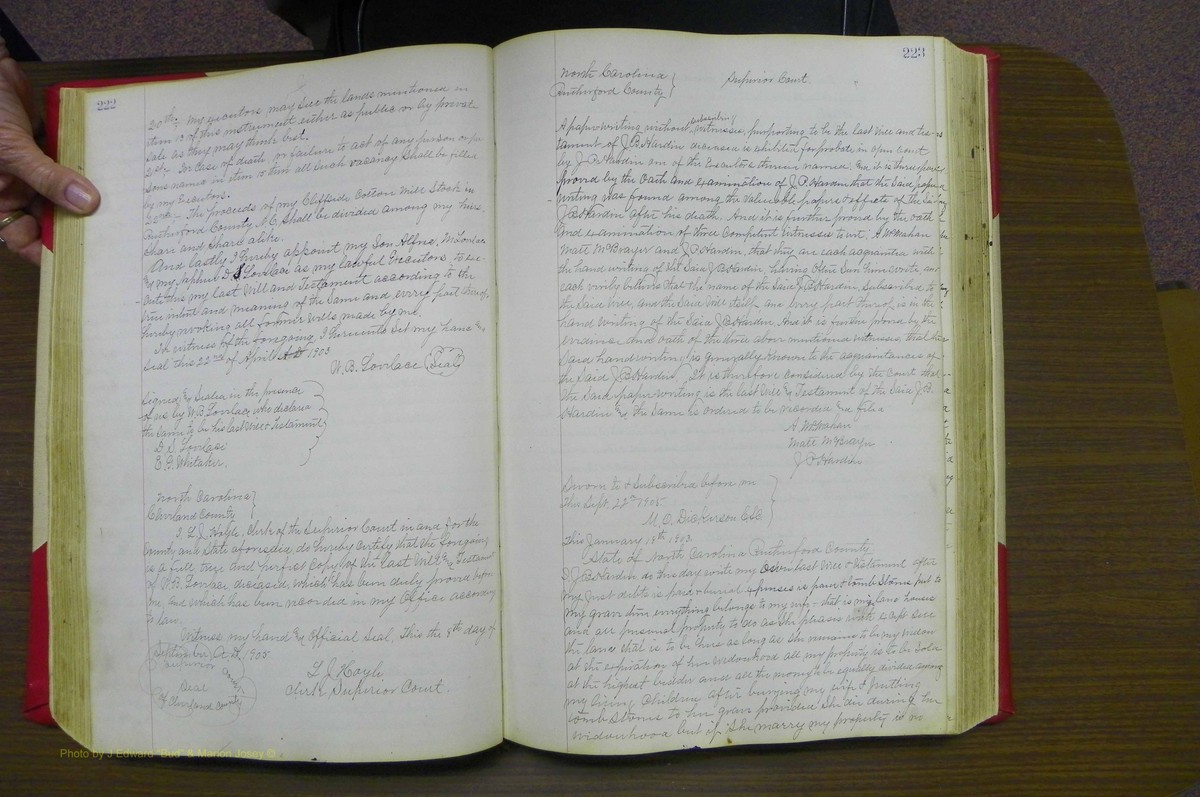 222
20th, My executors may sell the lands mentioned in
item 15 of this instrument either as public or by private
sale as they may think best.
21st. In case of death, or failure to act of any person or per
sons named in item 15 then all such vacancy shall be filled
by my Executors.
The proceeds of my Cliffside Cotton Mill Stock in
Rutherford County N.C. shall be divided among my heirs,
share and share alike.
And lastly I hereby appoint my Son Alfred M. Lovlace
& my Nephew D. S. Lovlace as my lawful Executors to exe
cute this my last Will and Testament according to the
true intent and meaning of the same and every part thereof
hereby revoking all former wills made by me.
In witness of the foregoing I hereunto set my hand &
seal this 22nd of April A.D. 1903
W. B. Lovlace (Seal)
Signed & Sealed in the presence
of us by W B Lovlace, who declared
the same to be his last Will & Testament
D. S. Lovlace
E. G. Whitaker.
North Carolina
Cleveland County
I, L. J. Hoyle, Clerk of the Superior Court in and for the
County and State aforesaid, do hereby certify that the foregoing
is a full true and perfect Copy of the Last Will & Testament
of W. B. Lovlace deceased, which has been duly proved before
me, and which has been recorded in my Office according
to law.
Witness my hand & Official Seal, This the 8th day of
September A.D. 1905
Superior Court
Seal
of Cleveland County
L J Hoyle
Clerk Superior Court.
223
North Carolina
Rutherford County
Superior Court
A paper writing without subscribing witnesses, purporting to be the last Will and tes
tament of J. B. Hardin deceased is exhibited for probate in open Court
by J. P. Hardin one of the Executors therein named. And it is thereupon
proved by the Oath and examination of J. P. Hardin that the said paper
writing was found among the valuable papers & effects of the said
J. B. Hardin after his death. And it is further proved by the oath
and examination of three Competent Witnesses to wit, A. McMahan
Matt McBrayer and J. P. Hardin, that they are each acquainted with
the hand writing of the said J B Hardin, having often seen him write, and
each verily believes that the name of the said J. B. Hardin subscribed to
the said Will, and the said Will itself, and every part thereof, is in the
hand writing of the said J. B. Hardin. And it is further proved by the
evidence and oath of the three above mentioned witnesses, that his
said handwriting is generally known to the acquaintances of
the said J B Hardin. It is therefore considered by the Court that
the said paper writing is the last Will & Testament of the said J. B.
Hardin & the same is ordered to be recorded & filed
A. McMahan
Matt McBrayer
J P Hardin
Sworn to & Subscribed before me
This Sept. 22nd 1905
M. O. Dickerson CSC
This January 13th 1903.
State of North Carolina Rutherford County
I J. B. Hardin do this day write my own last Will & Testament after
my Just debts is paid & burial expenses is paid & tomb Stone put to
my grave then everything belongs to my wife that is my land houses
and all personal property to do as She pleases with except sell
the land that is to be hers as long as she remains to be my widow
at the expiration of her widowhood all my property is to be sold
at the highest bidder and all the money to be equally divided among
my living Children after burying my wife & putting
tomb Stone to her grave provided She die during her
widowhood but if she marry my property is no
Photo by J Edward "Bud" & Marion Josey ©